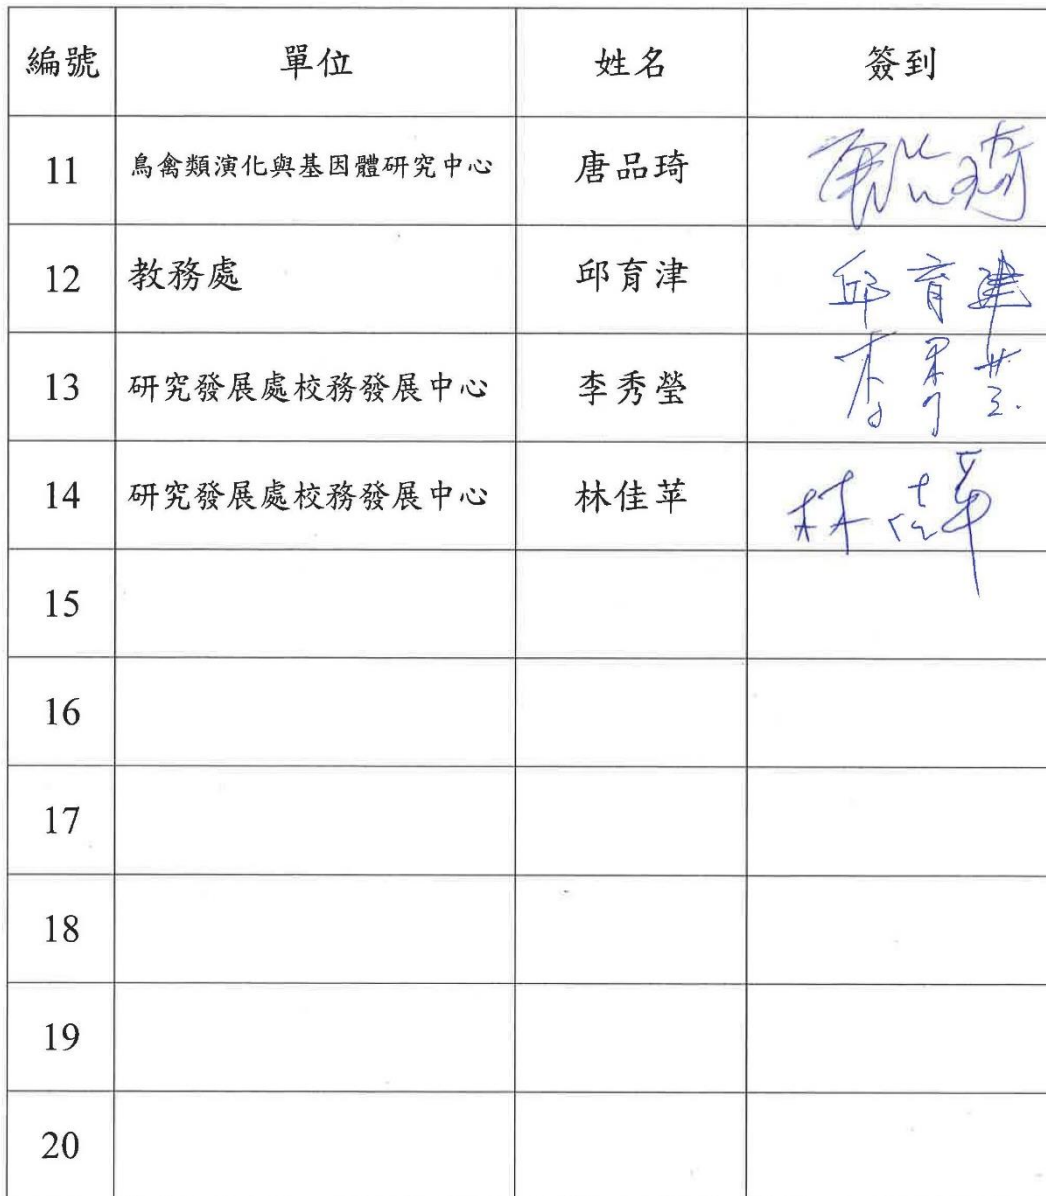 編號 單位 姓名 簽到
11 鳥禽類演化與基因體研究中心 唐品琦
12 教務處 邱育津 邱育津
13 研究發展處校務發展中心 李秀瑩 李秀瑩
14 研究發展處校務發展中心 林佳苹 林佳苹
15
16
17
18
19
20